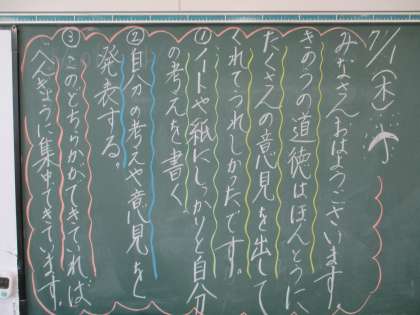 7/1(木)
みなさんおはようございます。
きのうの道徳はほんとうに
たくさんの意見を出して
くれてうれしかったです。
①ノートや紙にしっかりと自分
の考えを書く。
②自分の考えや意見を
発表する。
③このどちらかができていれば
べんきょうに集中できています。